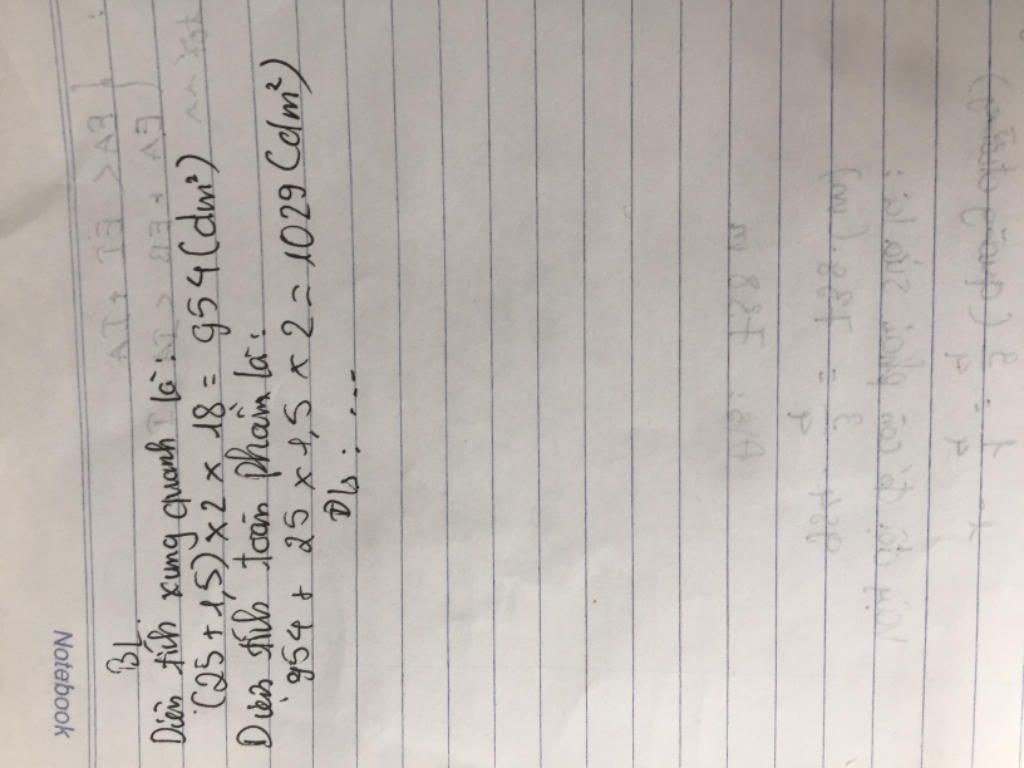 Notebook
BL
Diện tích xung quanh là:
(25 + 1,5) x 2 x 18 = 954 (dm²)
Diện tích toàn phần là:
954 + 25 x 1,5 x 2 = 1029 (dm²)
Đ/s: ....